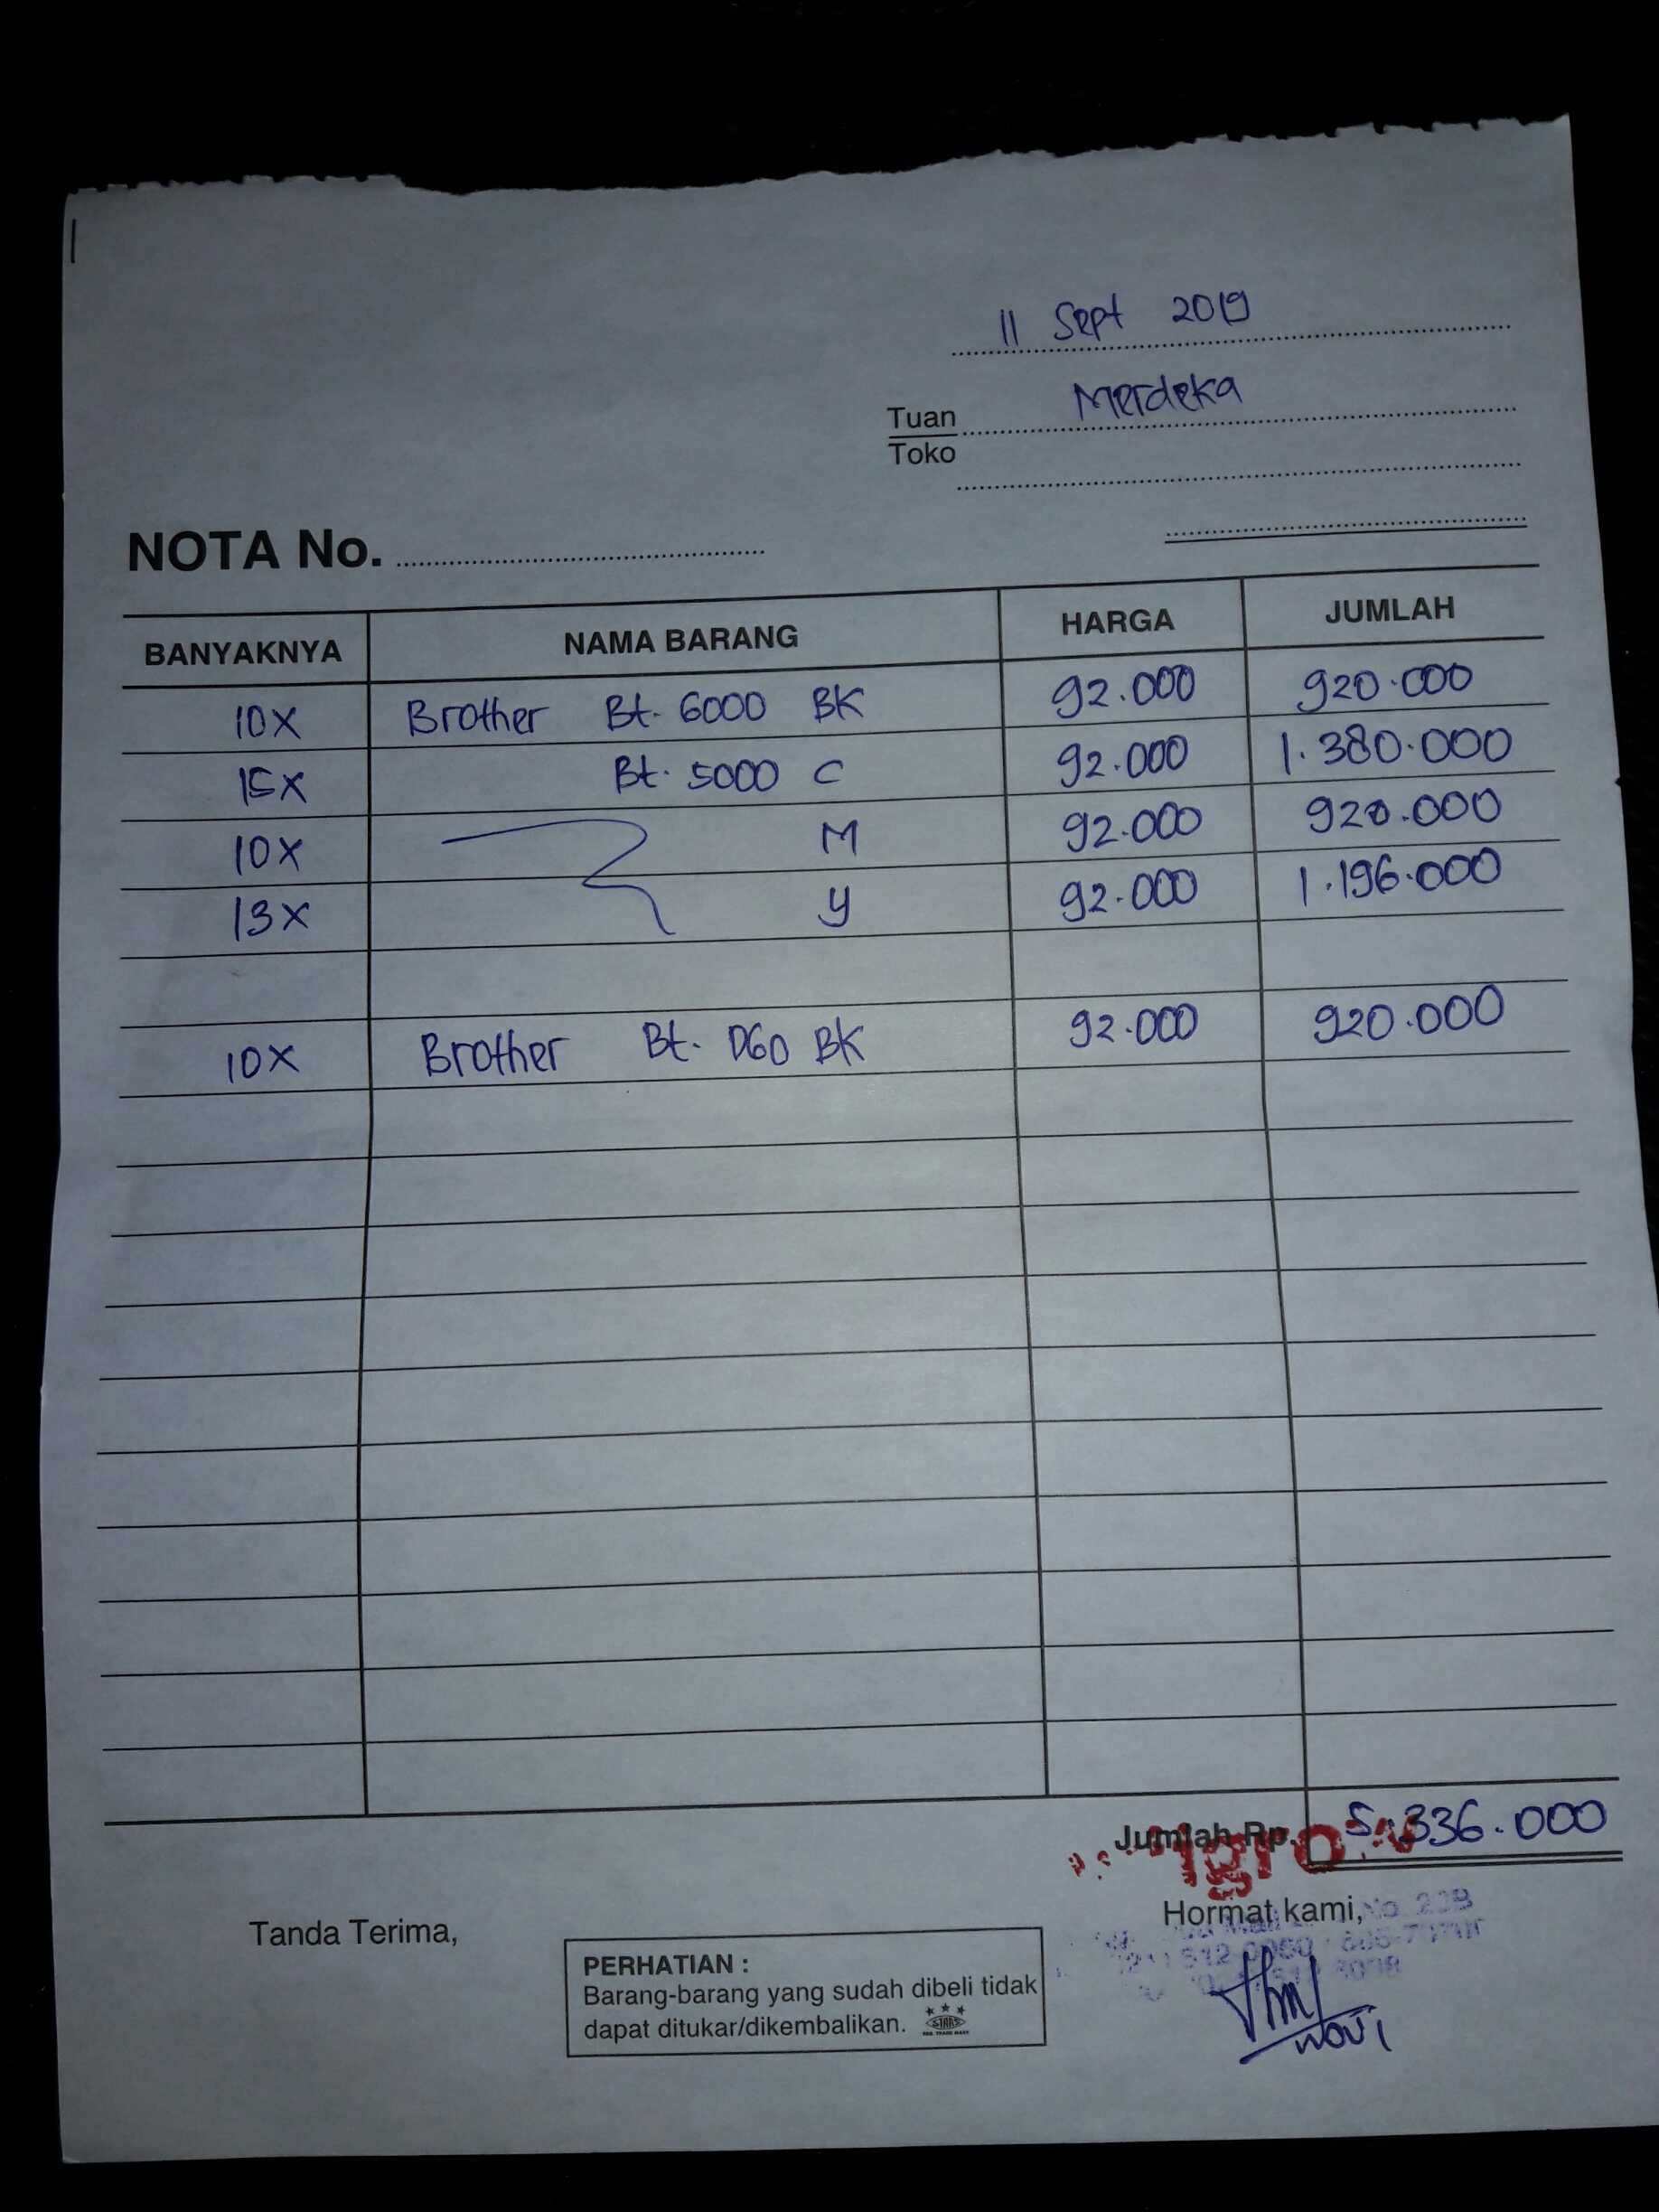 11 Sept 2019
Tuan Merdeka
Toko
NOTA No.
BANYAKNYA NAMA BARANG HARGA JUMLAH
10X Brother Bt. 6000 BK 92.000 920.000
15X Bt. 5000 C 92.000 1.380.000
10X M 92.000 920.000
13X y 92.000 1.196.000
10X Brother Bt. D60 BK 92.000 920.000
Jumlah Rp. 5.336.000
Tanda Terima,
Hormat kami,
PERHATIAN :
Barang-barang yang sudah dibeli tidak
dapat ditukar/dikembalikan.
STARS
NOVI